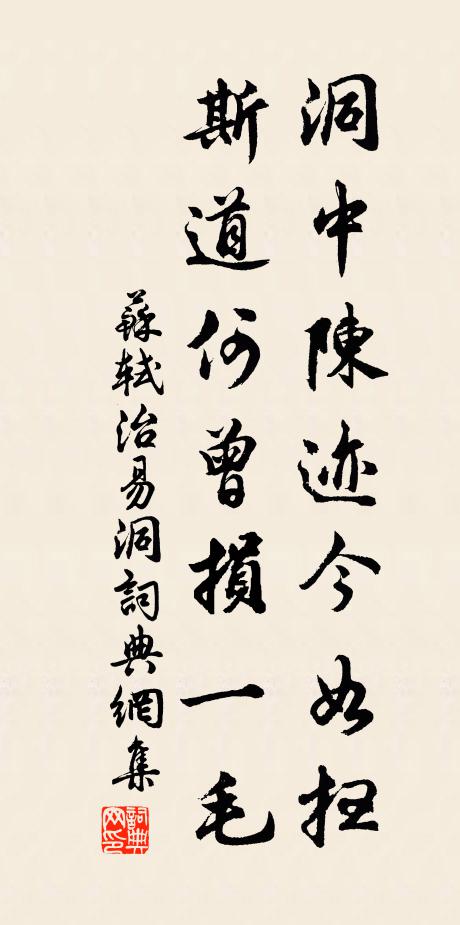 洞中陳迹今如掃
斯道何曾損一毛
蘇軾治易洞詞典網集
詞典網印